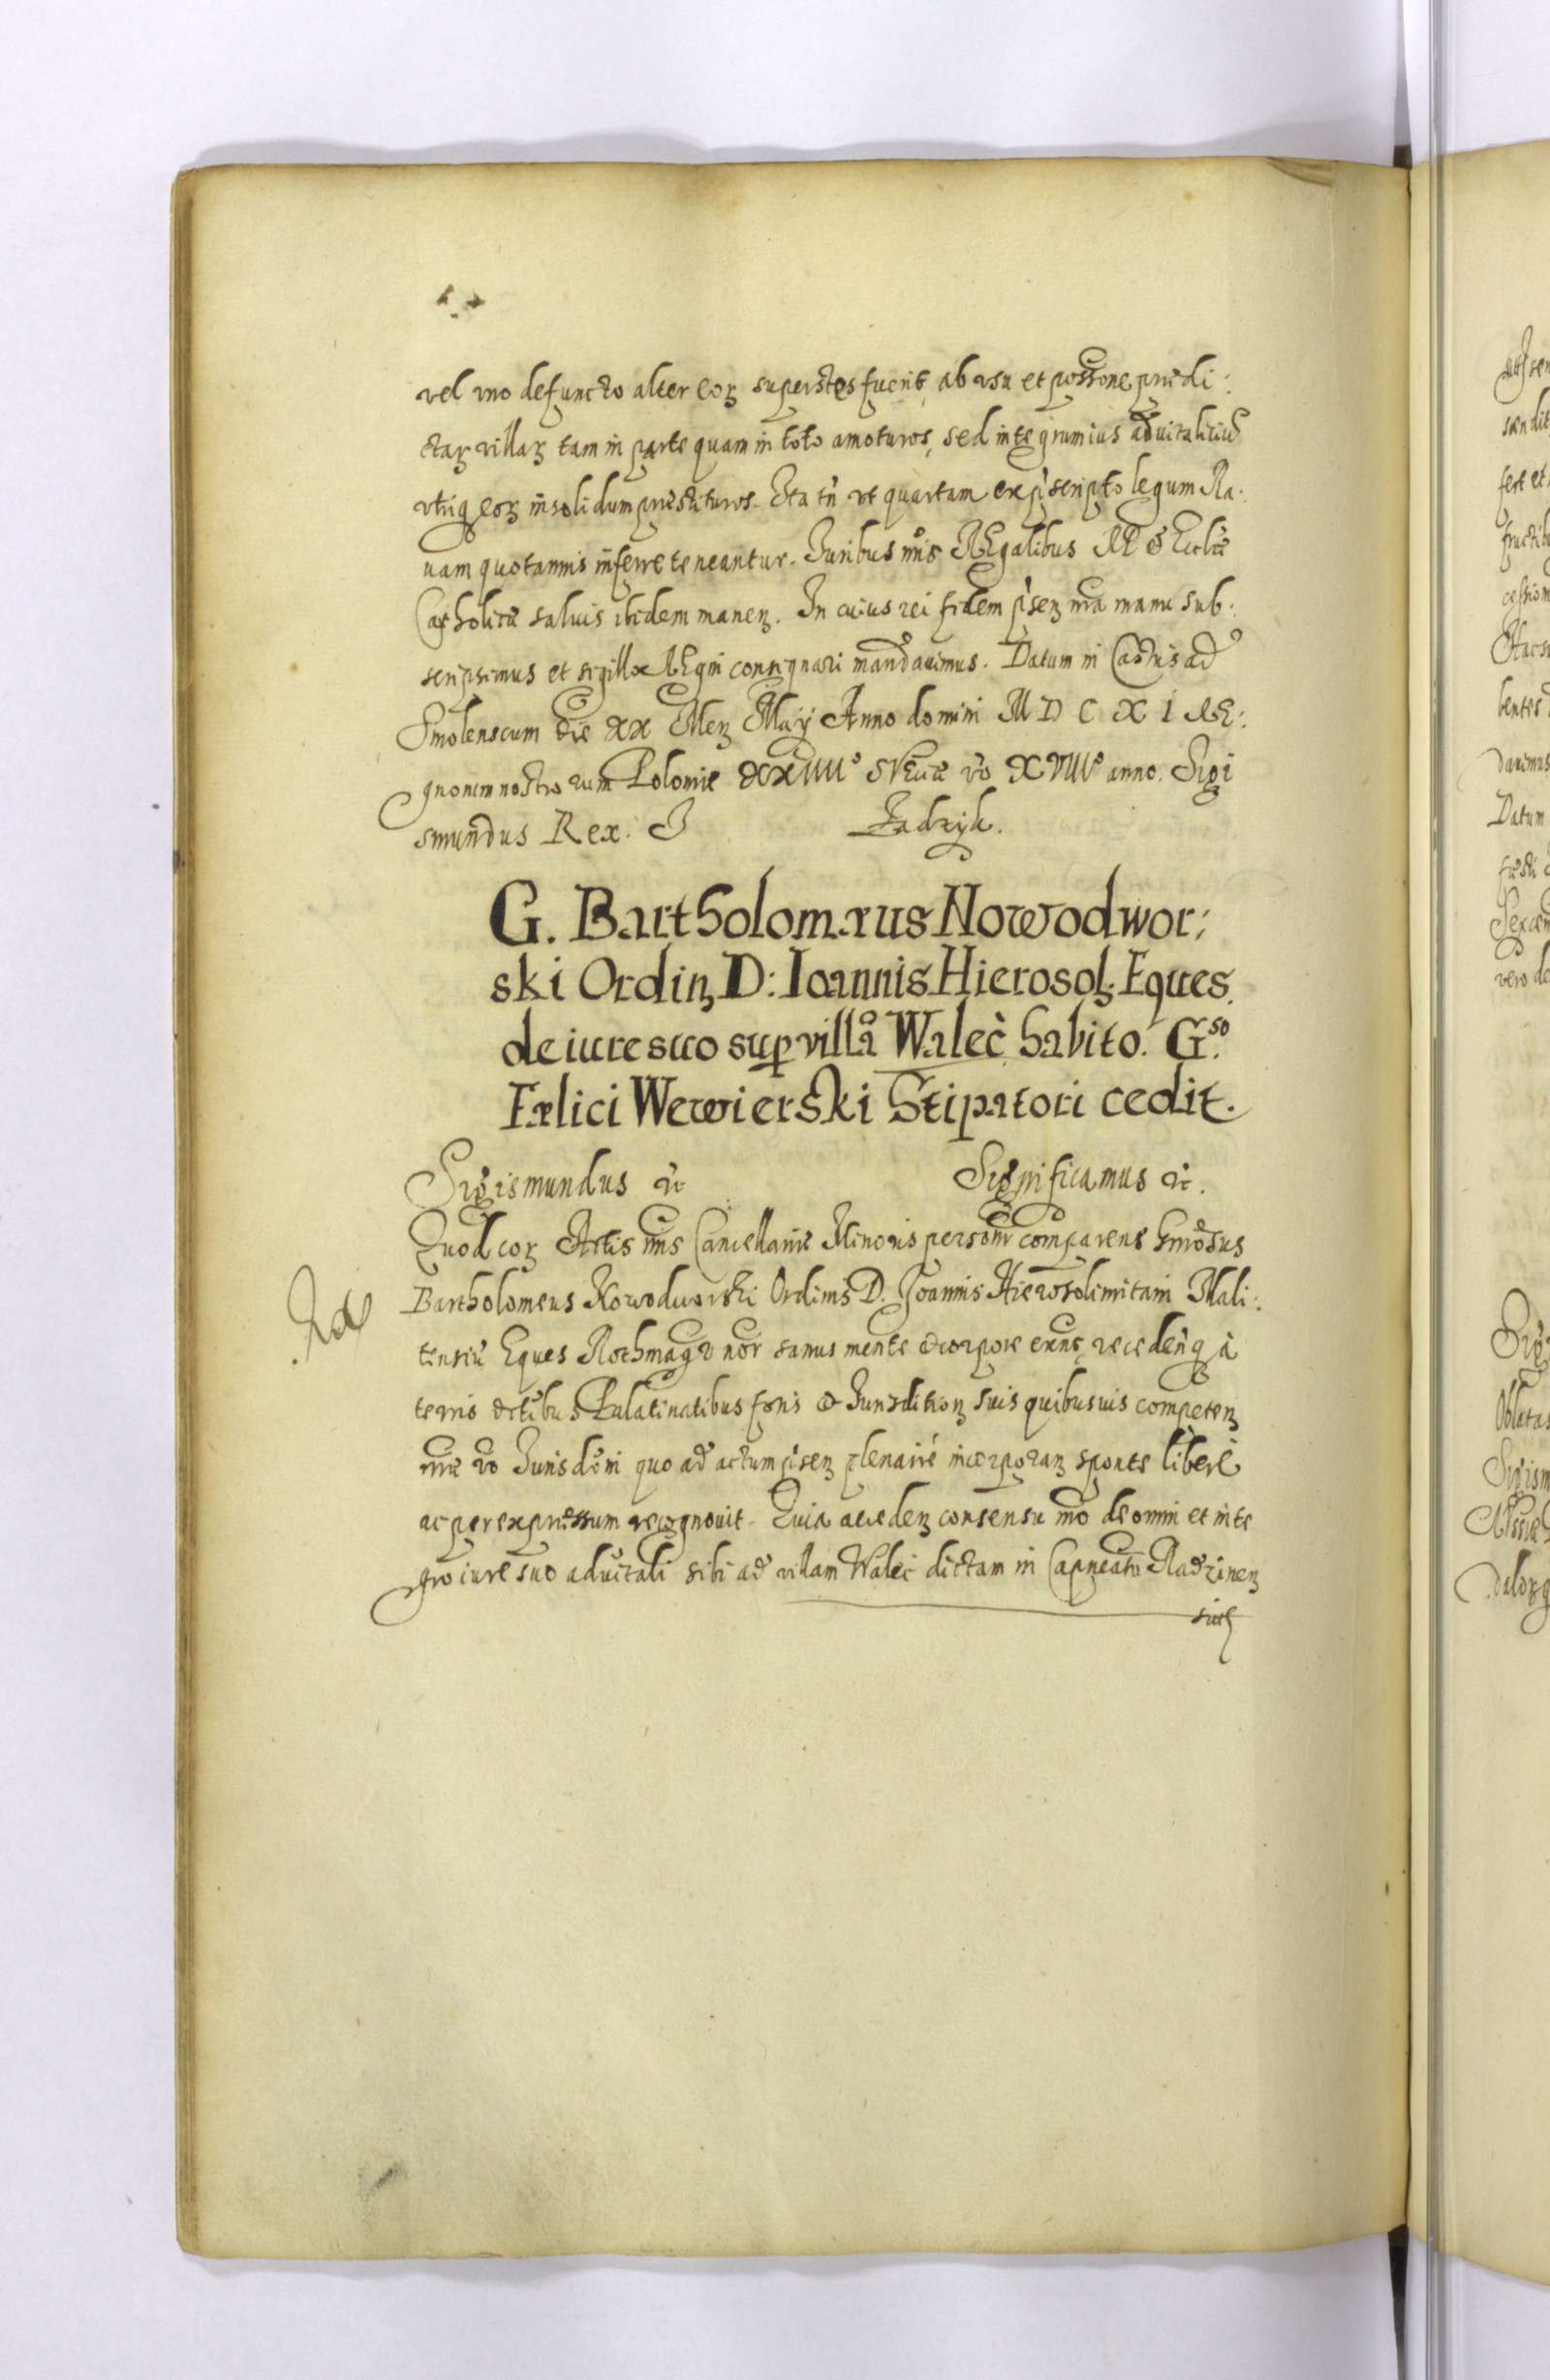 vel vno defuncto alter eoꝝ superstes fuerit, ab vsu et possõne prædi:
ctaꝝ villaꝝ tam in parte quam in toto amoturos, sed integrum ius aduitalitiũ
vtriq eoꝝ in solidum præstituros. Ita tñ vt quartam ex pscripto legum Ra:
uam quotannis inferre teneantur. Iuribus nris REgalibus RP & Ecclæ
Catholicæ saluis ibidem maneꝝ. In cuius rei fidem pseꝝ nra manu sub:
scripsimus et sigillo REgni consignari mandauimus. Datum in Castris ad
Smolenscum die XX Meꝝ Maÿ Anno domini M D C X I RE:
gnorum nostrorum Poloniæ XXIIII° SVEciæ vo XVIII° anno. Sigi
smundus Rex.
Zadzik.
G. Bartholomæus Nowodwor:
ski Ordiꝝ D: Ioannis Hierosoł. Eques
de iure suo sup villa Waleč habito. G.so
Fælici Wewierski Stipatori cedit.
Sigismundus &c
Significamus &c.
Quod coꝝ Actis nris Cancellariæ Minoris personr comparens Gnrosus
Bartholomeus Nowodworski Ordinis D. Joannis Hierosolimitani Mali:
tensiũ Eques Rothmagr nor sanus mente & corpore exñs, recedenq à
terris ditibus Palatinatibus foris & Iurisditioꝝ suis quibusuis competeꝝ
nræ vo Iurisdõni quo ad actum pseꝝ plenariè incorporaꝝ sponte liberè
ac per expressum recognouit. Quia accedeꝝ consensu nro de omni et inte
gro iure suo aduitali sibi ad villam Waleč dictam in Capneatu Radzineꝝ